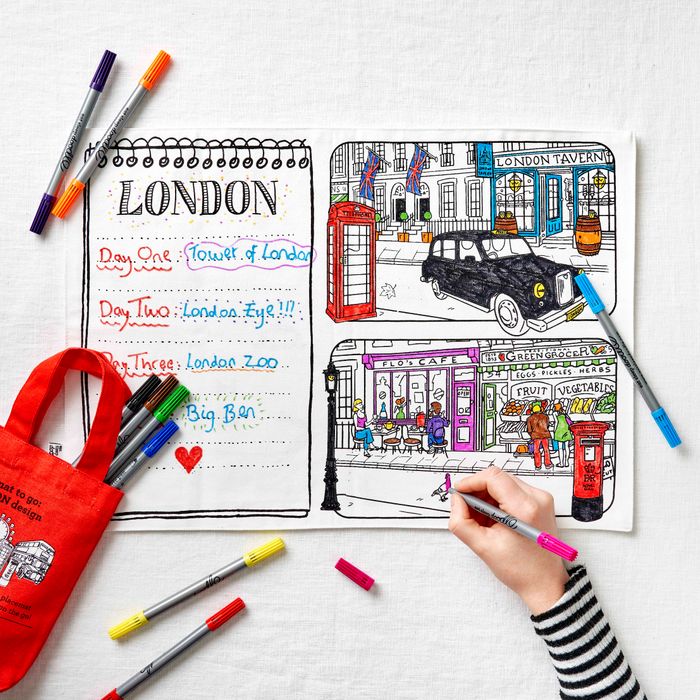 LONDON
Day One: Tower of London
Day Two: London Eye!!!
Day Three: London Zoo
Big Ben
LONDON TAVERN
FLO'S CAFE
GREENGROCER
EGGS·PICKLES·HERBS
FRUIT
VEGETABLES
ER
at to go:
ON design
placemat
on the go!